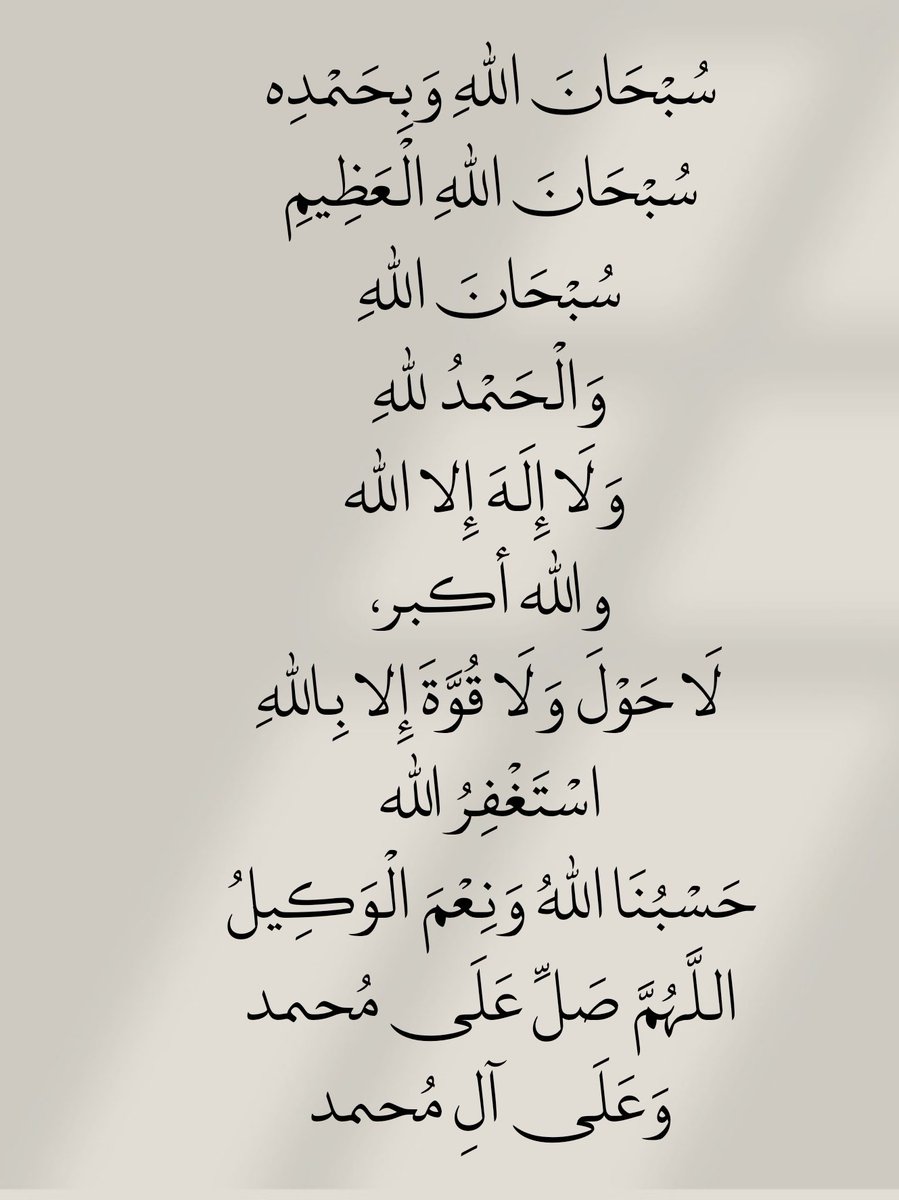 سُبْحَانَ اللهِ وَبِحَمْدِه
سُبْحَانَ اللهِ الْعَظِيمِ
سُبْحَانَ اللهِ
وَالْحَمْدُ للهِ
وَلَا إِلَهَ إِلا الله
والله أكبر،
لَا حَوْلَ وَلَا قُوَّةَ إِلا بِاللهِ
اسْتَغْفِرُ الله
حَسْبُنَا اللهُ وَنِعْمَ الْوَكِيلُ
اللَّهُمَّ صَلِّ عَلَى مُحمد
وَعَلَى آلِ مُحمد